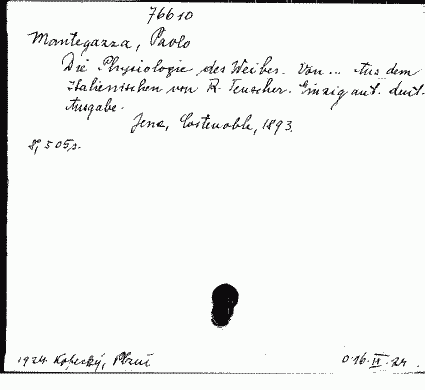 76610
Mantegazza, Paolo
Die Physiologie des Weibes. Von ... Aus dem
Italienischen von R. Teuscher. Einzig aut. deut.
Ausgabe.
Jena, Costenoble, 1893.
8°, 505 s.
1924. Kopecký, Plzni 0.16.II.24